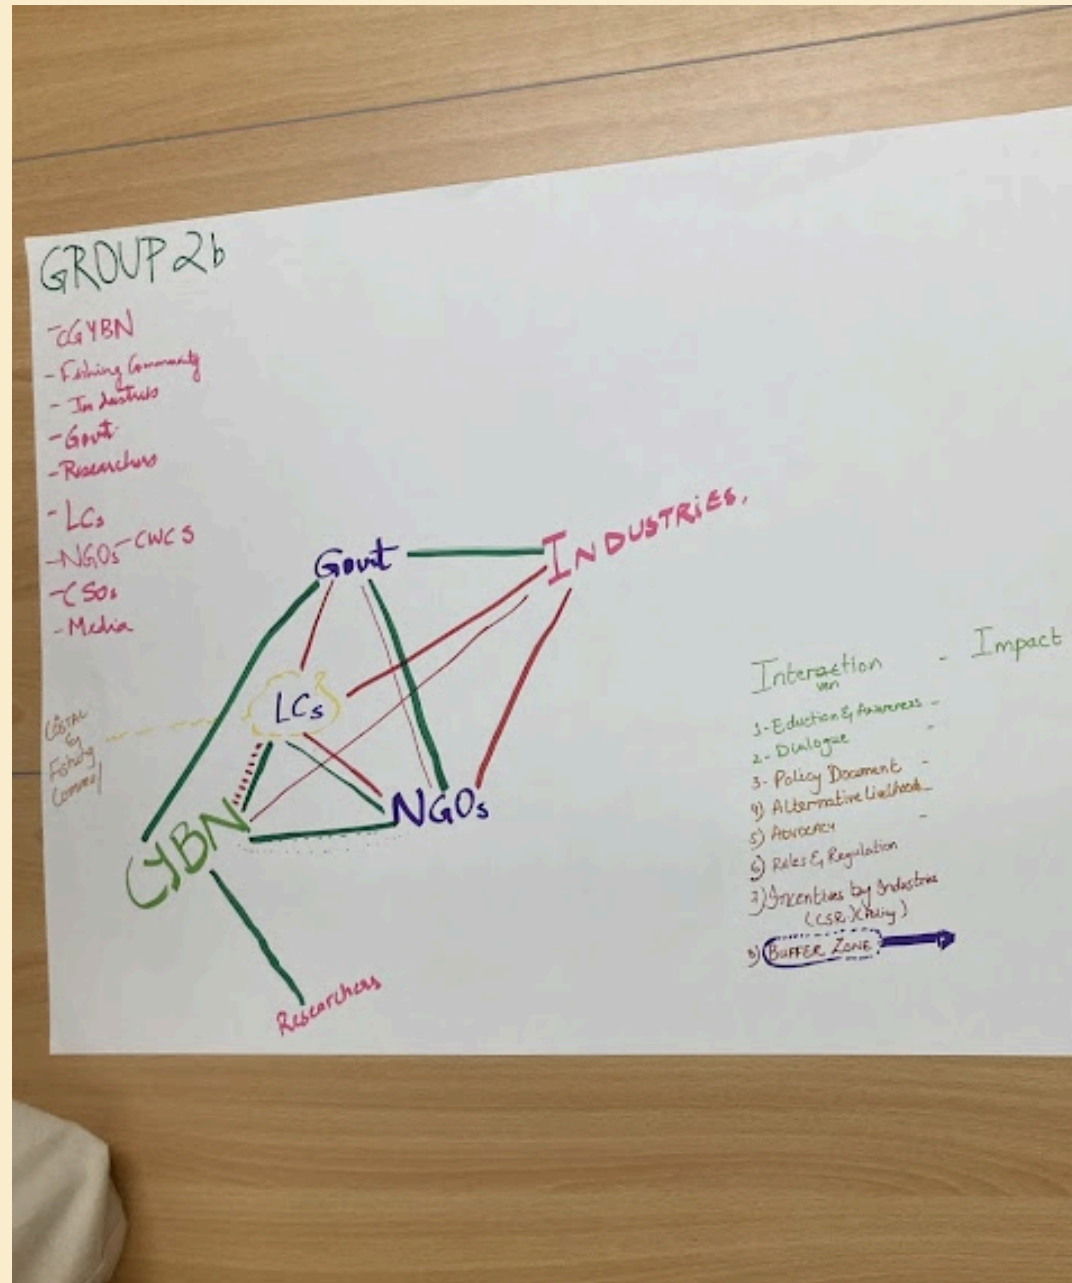 GROUP 2b
- CGYBN
- Fishing Community
- Industries
- Govt
- Researchers
- LCs
- NGOs - CWCS
- CSOs
- Media
Govt
INDUSTRIES.
LCs
COSTAL
&
Fishing
NGOs
CYBN
Researchers
Interaction - Impact
1 - Eduction & Awareness -
2 - Dialogue -
3 - Policy Document -
4) Alternative Livelihoods -
5) ADVOCACY -
6) Roles & Regulation
7) Incentives by Industries
(CSR) (Policy)
8) BUFFER ZONE